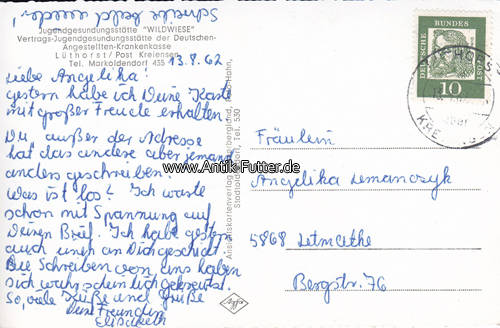 Schreibe bald wieder!
Jugendgesundungsstätte "WILDWIESE"
Vertrags-Jugendgesundungsstätte der Deutschen-
Angestellten-Krankenkasse
Lüthorst/Post Kreiensen
Tel. Markoldendorf 435
13.8.62
Liebe Angelika!
gestern habe ich Deine Karte
mit großer Freude erhalten.
Du außer der Adresse
hat das andere aber jemand
anders geschrieben.
Was ist los? Ich warte
schon mit Spannung auf
Deinen Brief. Ich habe gestern
auch einen an Dich geschickt.
Die Schreiben von uns haben
sich wahrscheinlich gekreuzt.
So, viele Küße und Grüße
Deine Freundin
Elisabeth
Ansichtskartenverlag
Tel. 530
www.Antik-Futter.de
DEUTSCHE BUNDESPOST
10
KRE
Fräulein
Angelika Lemanczyk
5868 Letmathe
Bergstr. 76